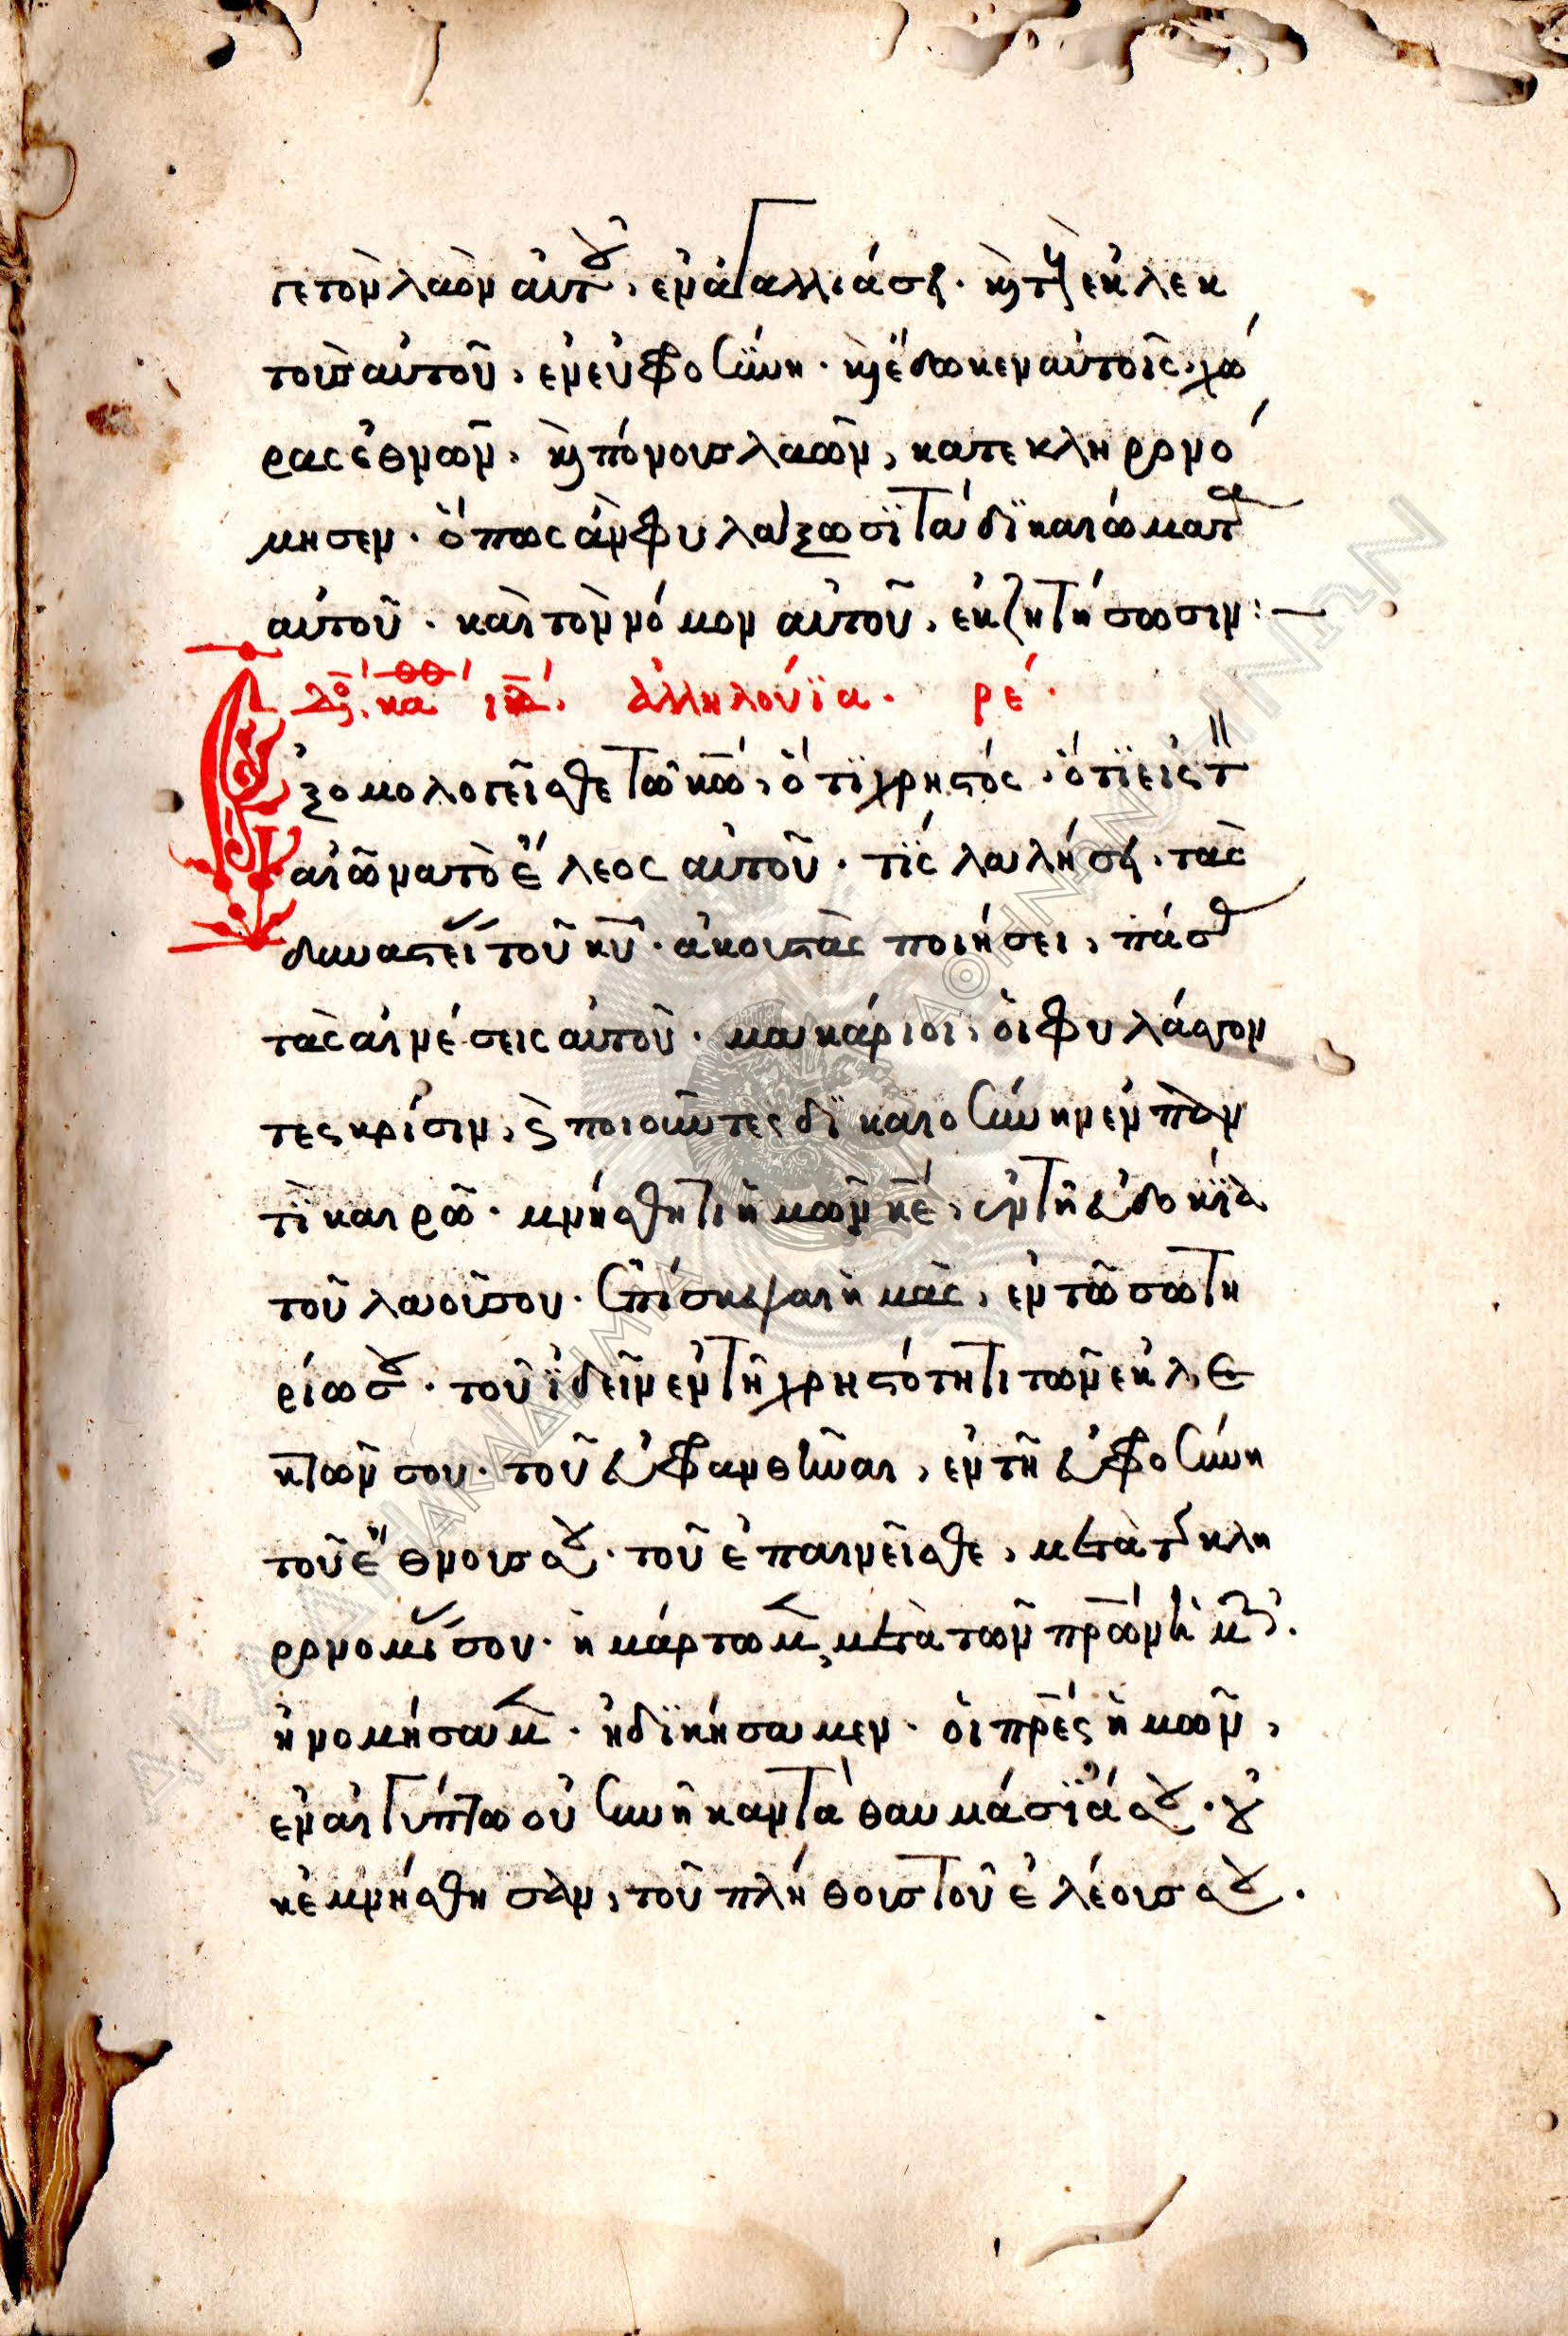 γε τὸν λαὸν αὐτοῦ, ἐν ἀγαλλιάσει. καὶ τοὺς ἐκλεκ
τοὺς αὐτοῦ, ἐν εὐφροσύνη. καὶ ἔδωκεν αὐτοῖς, χώ
ρας ἐθνῶν, καὶ πόνους λαῶν, κατεκληρονό
μησεν. ὅπως ἂν φυλάξωσϊ τὰ δϊκαιώματα
αὐτοῦ. καὶ τὸν νόμον αὐτοῦ, ἐκζητήσωσιν:—
ἀλληλούϊα. ρε΄.
Ἐξομολογεῖσθε τῶ κῶ, ὅτϊ χρηστός. ὅτϊ εἰς τὸν
αἰῶνα τὸ ἔλεος αὐτοῦ. τΐς λαλήσει, τὰς
δυναστείας τοῦ κυ. ἀκουστὰς ποιήσει, πάσας
τὰς αἰνέσεις αὐτοῦ. μακάριοι, οἱ φυλάσσον
τες κρίσιν, καὶ ποιοῦντες δϊκαιοσύνην ἐν παν
τὶ καιρῶ. μνήσθητι ἡμῶν κε, ἐν τῆ εὐδοκΐα
τοῦ λαοῦ σου. ἐπίσκεψαι ἡμᾶς, ἐν τῶ σωτη
ρίω σου. τοῦ ἰδεῖν ἐν τῆ χρηστότητι τῶν ἐκλε
κτῶν σου. τοῦ εὐφρανθῆναι, ἐν τῆ εὐφροσύνη
τοῦ ἔθνους σου. τοῦ ἐπαινεῖσθε, μετὰ τῆς κλη
ρονομίας σου. ἡμάρτωμεν, μετὰ τῶν πρων ἡμῶν.
ἠνομήσαμεν. ἠδϊκήσαμεν. οἱ πρες ἡμῶν,
ἐν αἰγύπτω οὐ συνῆκαν τὰ θαυμάσϊά σου. οὐ
κ ἐμνήσθησαν, τοῦ πλήθους τοῦ ἐλέους σου.